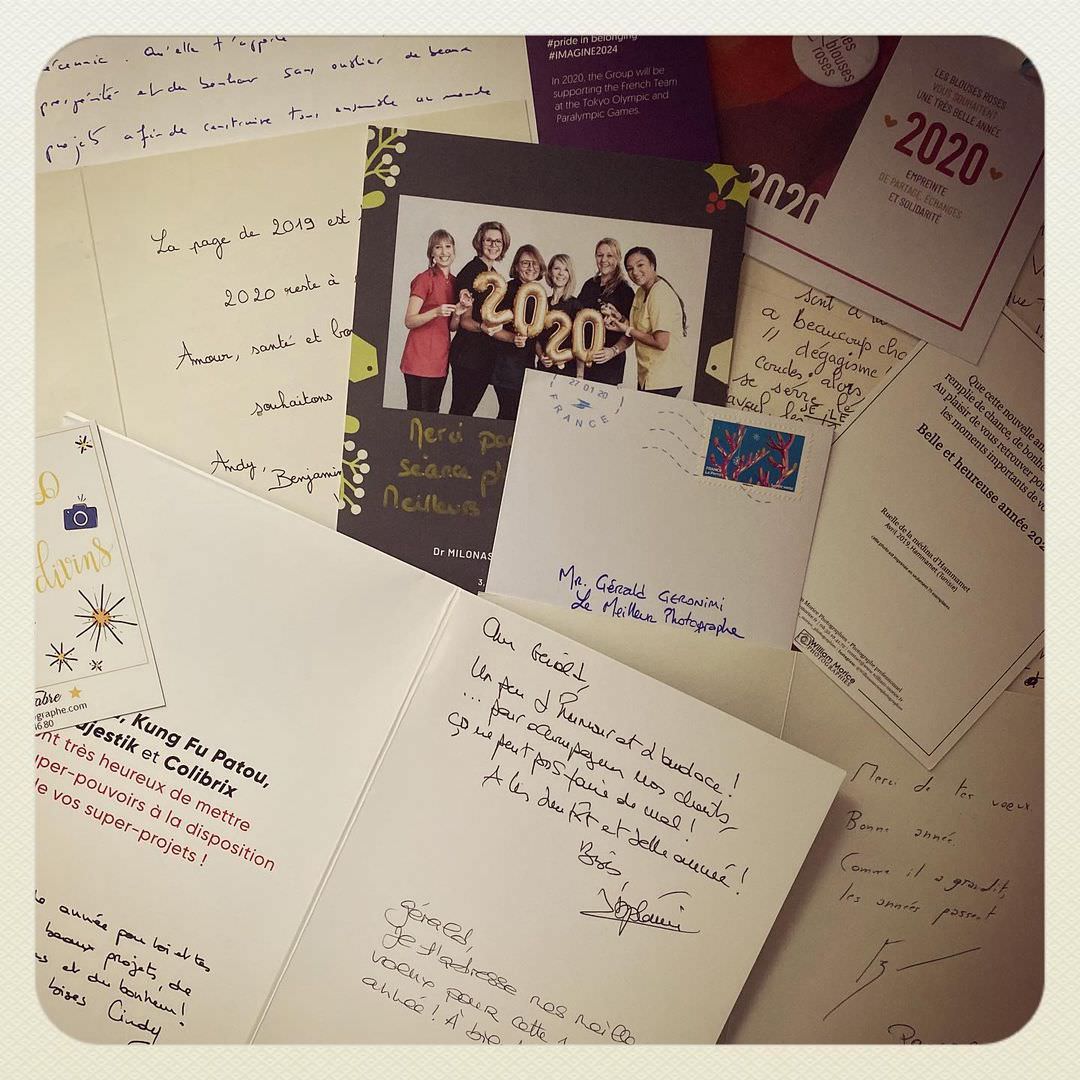 qu'elle t'apporte
prospérité et du bonheur sans oublier de beaux
projets afin de construire tous ensemble au monde
#pride in belonging
#IMAGINE2024
In 2020, the Group will be
supporting the French Team
at the Tokyo Olympic and
Paralympic Games.
les
blouses
roses
2020
LES BLOUSES ROSES
VOUS SOUHAITENT
UNE TRÈS BELLE ANNÉE
2020
EMPREINTE
DE PARTAGE, ÉCHANGES
ET SOLIDARITÉ
La page de 2019 est
2020 reste à
Amour, santé et
souhaitons
Andy, Benjamin
2020
Merci
séance
Meilleurs
Dr MILONAS
3,
27 01 20
FRANCE
FRANCE
Mr. Gérald GERONIMI
Le Meilleur Photographe
sont à
a beaucoup
" dégagisme
coudes, alors
se serre le
Que cette nouvelle
remplie de chance, de
Au plaisir de vous retrouver
les moments importants de
Belle et heureuse année
Ruelle de la médina d'Hammamet
Avril 2019, Hammamet (Tunisie)
William Morice
PHOTOGRAPHIES
divins
graphe.com
46.80
Kung Fu Patou,
ajestik et Colibrix
nt très heureux de mettre
uper-pouvoirs à la disposition
de vos super-projets !
année pour toi et tes
beaux projets, de
et du bonheur!
bises Cindy
Cher Gérald
Un peu d'humour et d'audace !
... pour accompagner nos clients,
ça ne peut pas faire de mal !
A bientôt et belle année !
Bises
Stéphanie
Gérald,
Je t'adresse mes meille
voeux pour cette
année ! À
Merci de tes voeux.
Bonne année.
Comme il a grandit,
les années passent